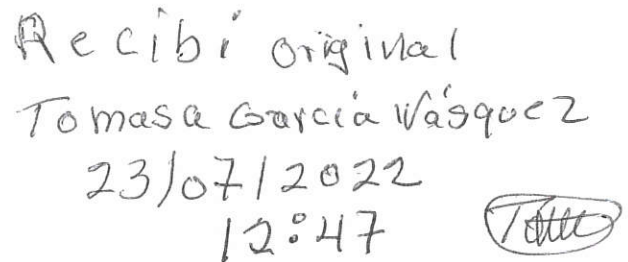 Recibí original
Tomasa García Vásquez
23/07/2022
12:47